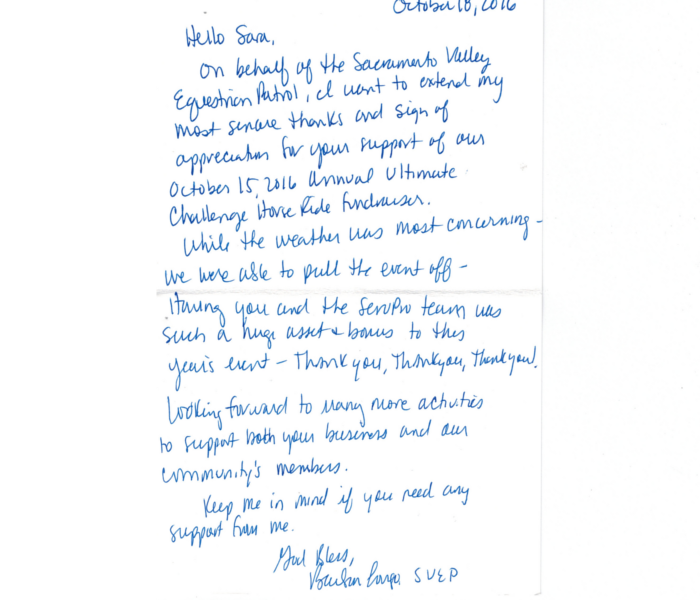 October 18, 2016
Hello Sara,
On behalf of the Sacramento Valley
Equestrian Patrol, I want to extend my
most sincere thanks and sign of
appreciation for your support of our
October 15, 2016 Annual Ultimate
Challenge Horse Ride fundraiser.
While the weather was most concerning -
we were able to pull the event off -
Having you and the ServPro team was
such a huge asset & bonus to this
year's event - Thank you, Thank you, Thank you!
Looking forward to many more activities
to support both your business and our
community's members.
Keep me in mind if you need any
support from me.
God Bless,
SVEP